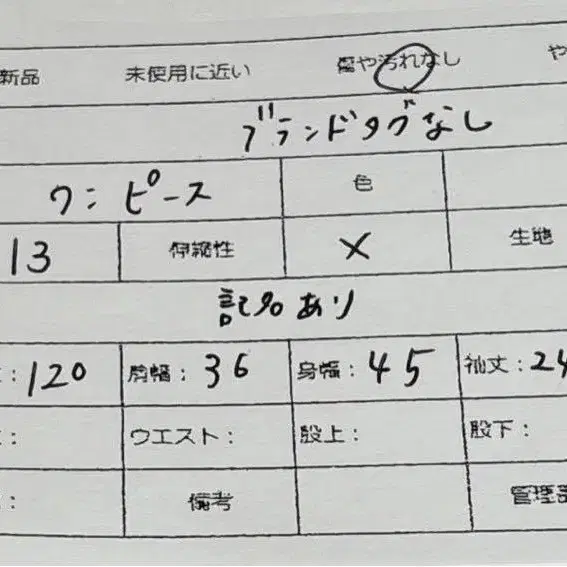 新品 未使用に近い 傷や汚れなし や
ブランドタグなし
ワンピース 色
13 伸縮性 × 生地
記名あり
: 120 肩幅: 36 身幅: 45 袖丈: 24
: ウエスト: 股上: 股下:
: 備考 管理